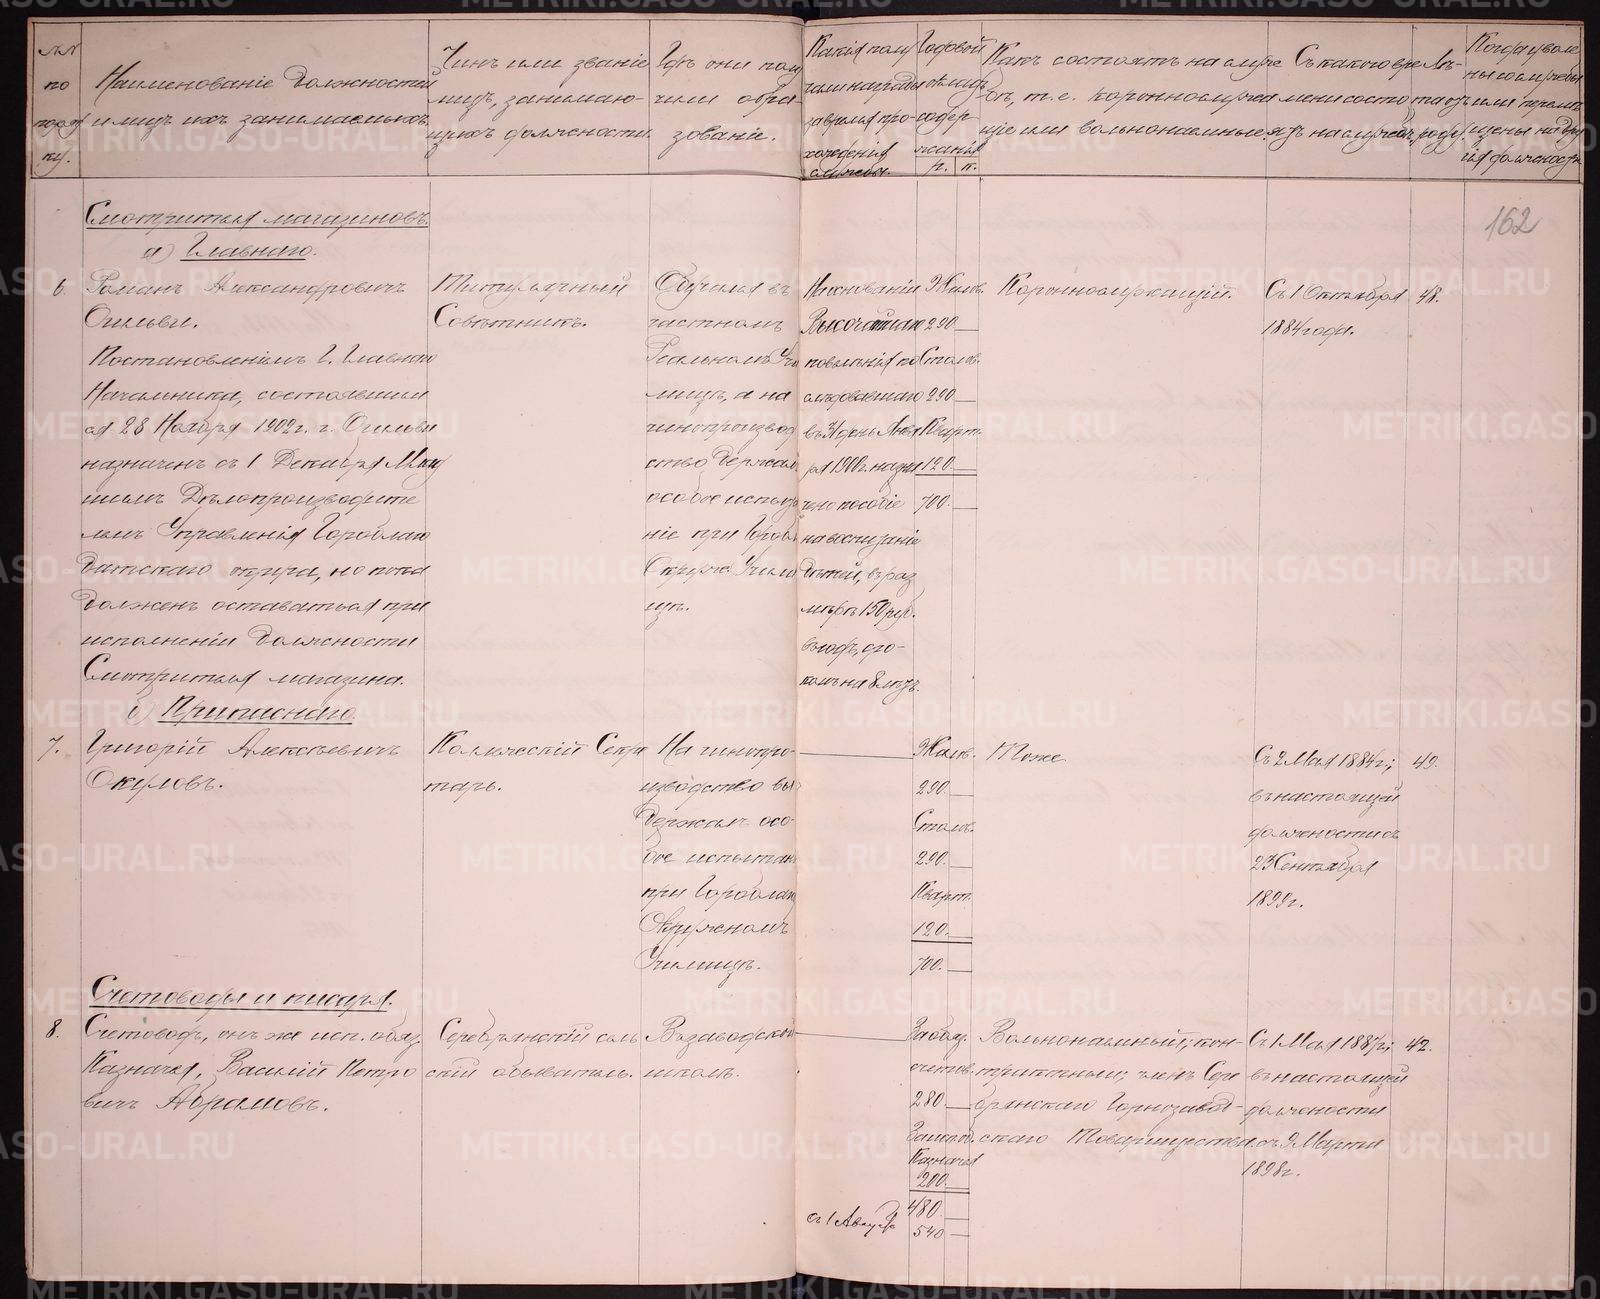 №№ по поряд ку.
Наименованіе должностей и лицъ ихъ занимаемыхъ
Чинъ или званіе лицъ, занимаю- щихъ должности.
Гдѣ они полу чили обра- зованіе.
Какія полу чали награды за время про- хожденія службы.
Годовой окладъ содер- жанія р. к.
Какъ состоятъ на служ бѣ, т. е. короннослужа щіе или вольнонаемные
Съ какого вре мени состо ятъ на службѣ
Лѣ- та отъ роду.
Когда уволе- ны со службы или перемѣ щены на дру гія должности
162
Смотрителя магазиновъ.
а) Главнаго.
6. Романъ Александровичъ
Огильви.
Постановленіемъ Г. Главнаго
Начальника, состоявшим
ся 28 Ноября 1902 г. г. Огильви
назначенъ съ 1 Декабря Млад
шимъ Дѣлопроизводите
лемъ Управленія Гороблаго
датскаго округа, но пока
долженъ оставаться при
исполненіи должности
Смотрителя магазина.
Титулярный
Совѣтникъ.
Обучался въ
частномъ
Реальномъ Учи
лищѣ, а на
чинопроизвод
ство держалъ
особое испыта
ніе при Гороблаг
Окруж. Учили
щѣ.
На основаніи
Высочайшаго
повелѣнія по
слѣдовавшаго
въ 31 день Янва
ря 1900 г. назна
чено пособіе
на воспитаніе
дѣтей, въ раз
мѣрѣ 150 руб.
въ годъ, сро-
комъ на 8 лѣтъ.
Жалов.
290 —
Столов.
290 —
Кварт.
120 —
700 —
Короннослужащій.
Съ 1 Октября
1884 года.
48.
б) Припаснаго.
7. Григорій Алексѣевичъ
Окуловъ.
Коллежскій Секре
тарь.
На чинопро-
изводство вы
держалъ осо-
бое испытан.
при Гороблаг.
Окружномъ
Училищѣ.
Жалов.
290 —
Столов.
290 —
Кварт.
120 —
700 —
Тоже.
Съ 2 Мая 1884 г.;
въ настоящей
должности съ
23 Сентября
1899 г.
49.
Счетоводы и писаря.
8. Счетоводъ, онъ же исп. обяз.
Казначея, Василій Петро
вичъ Абрамовъ.
Серебрянскій сель
скій обыватель.
Въ заводской
школѣ.
За обяз.
счетов.
280 —
За исп. об.
Казначея
200 —
480 —
съ 1 Август 540 —
Вольнонаемный, кон-
трактный; членъ Сере
брянскаго Горнозавод-
скаго Товарищества
Съ 1 Мая 1887 г.;
въ настоящей
должности
съ 9 Марта
1898 г.
42.
METRIKI.GASO-URAL.RU